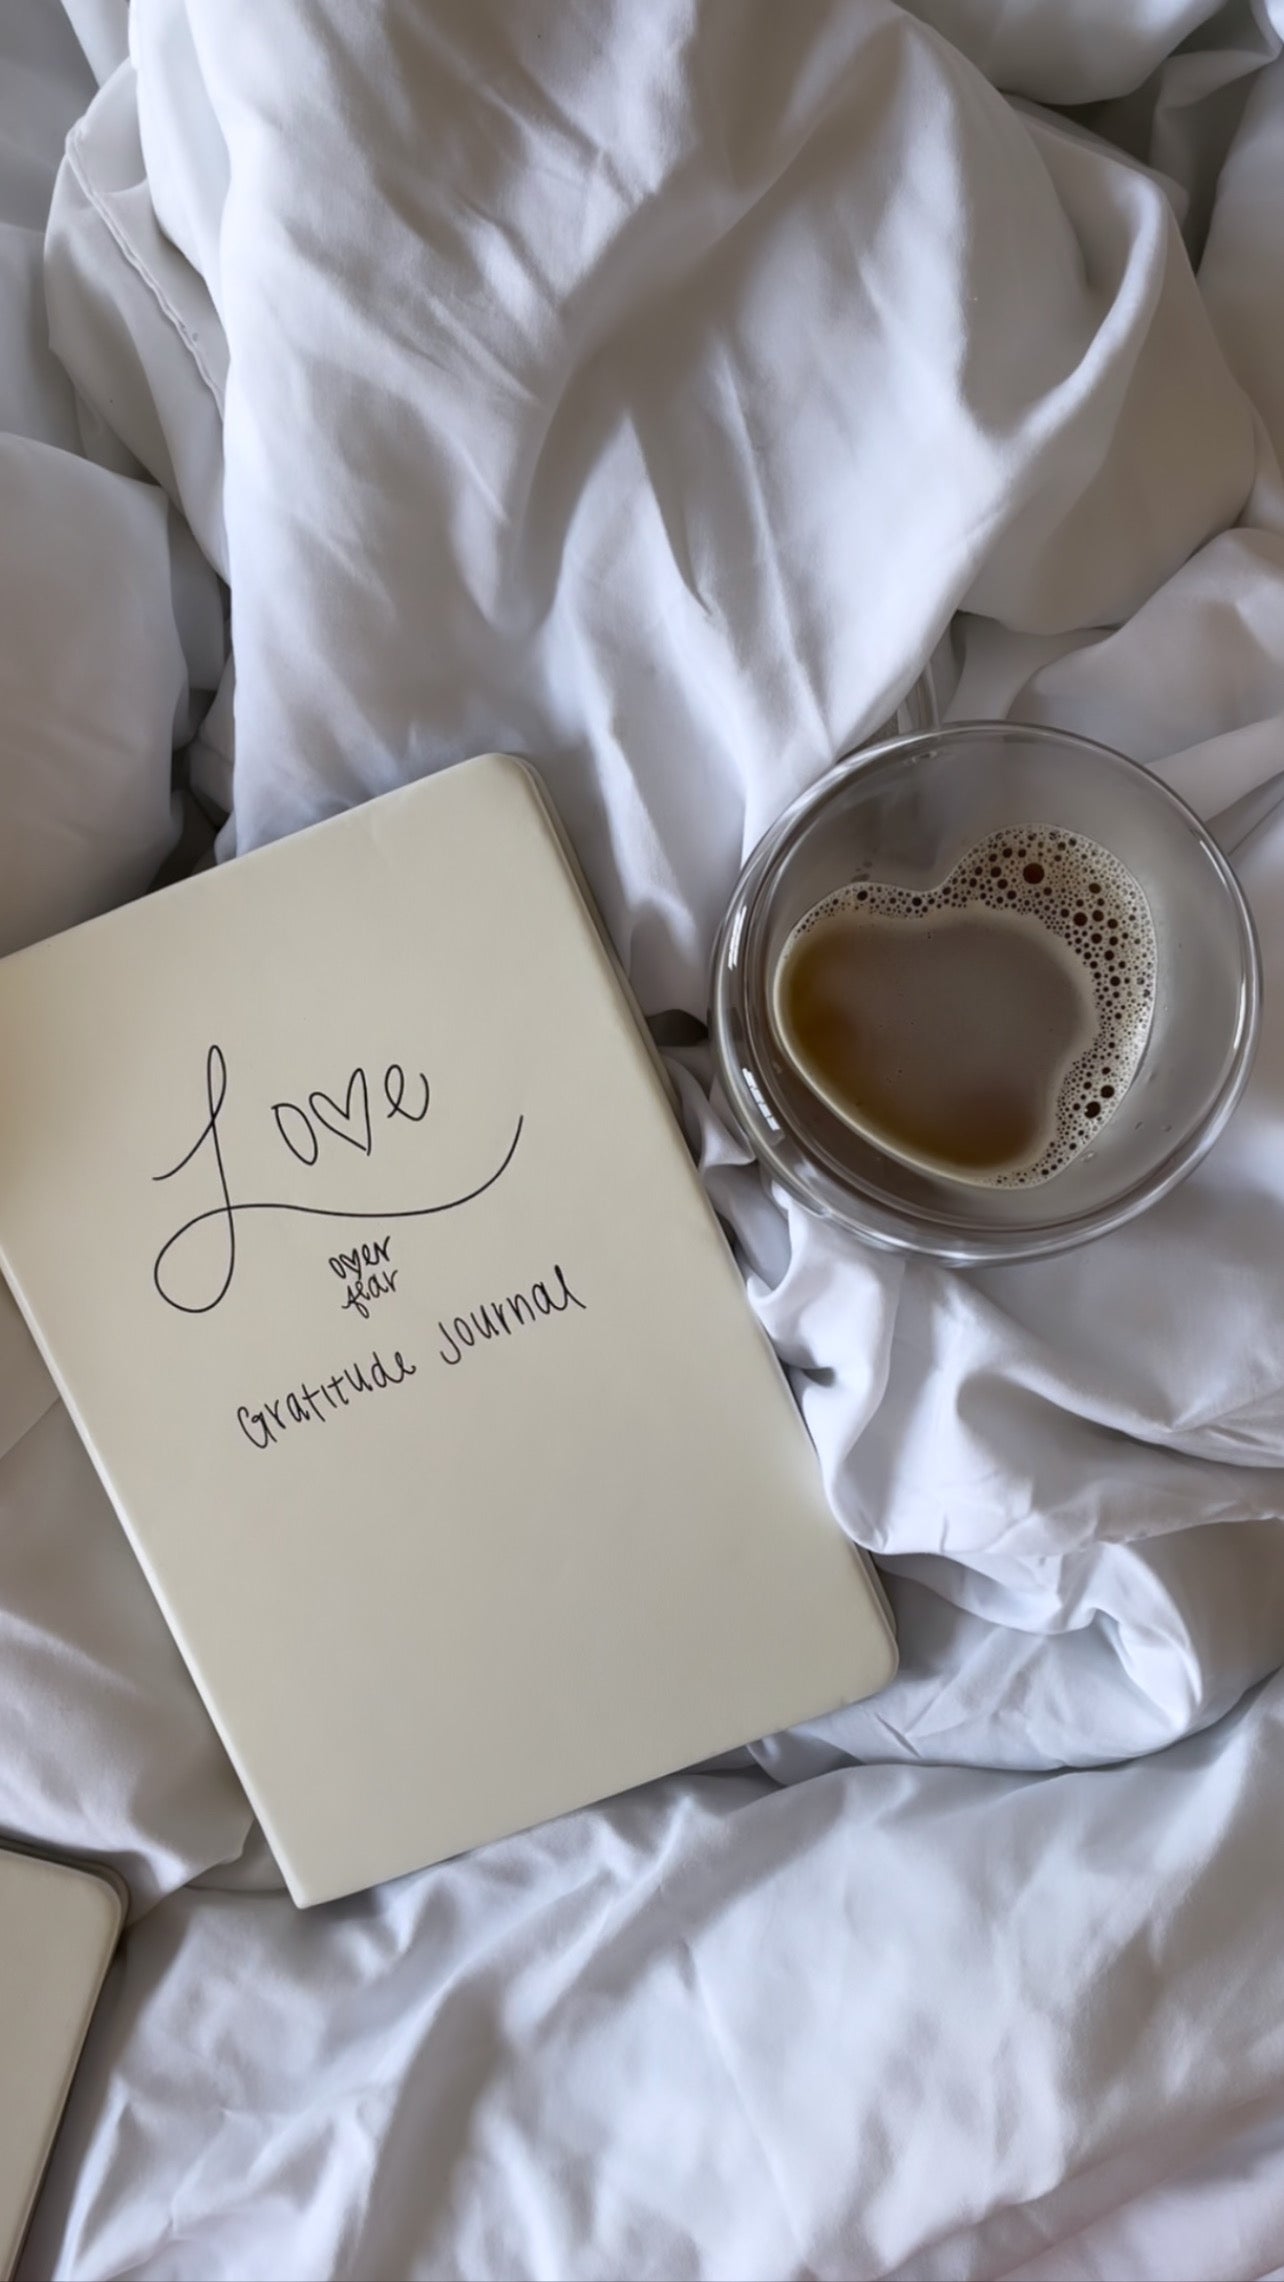 Love
over
fear
Gratitude Journal